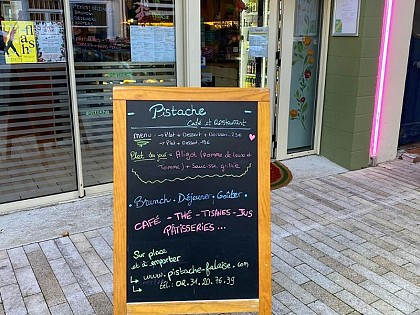 flash
Pistache
Café et Restaurant
menu : → Plat + Dessert + Boisson = 23€
→ Plat + Dessert
Plat du jour = Aligot (Pomme de terre et
Tomme) + Saucisse grillée
Brunch - Déjeuner - Goûter
CAFÉ - THÉ - TISANES - JUS
PÂTISSERIES ...
Sur place
et à emporter
↳ www.pistache-falaise.com
↳ tél : 02.31.20.76.39